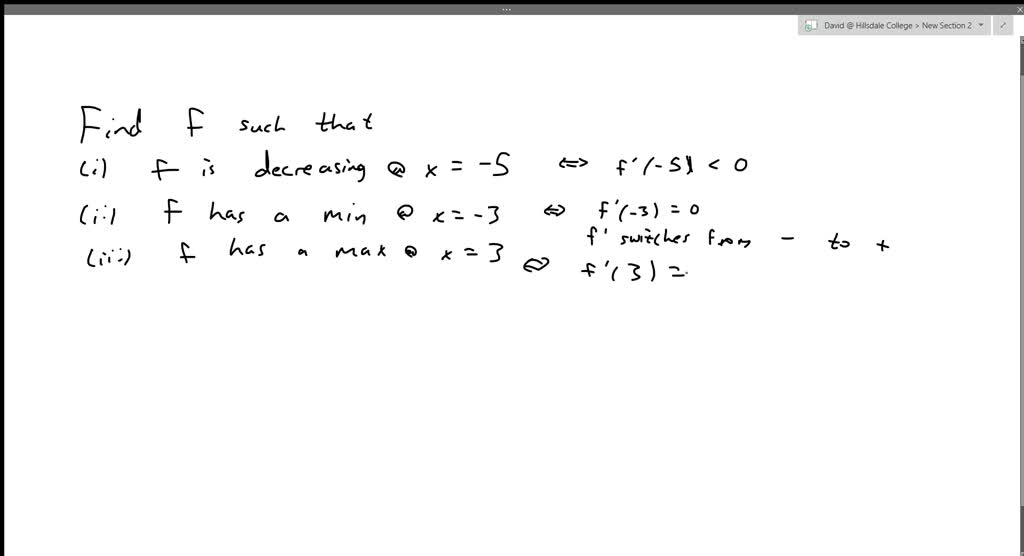 David @ Hillsdale College > New Section 2
Find f such that
(i) f is decreasing @ x = -5 ⇔ f'(-5) < 0
(ii) f has a min @ x = -3 ⇔ f'(-3) = 0
f' switches from - to +
(iii) f has a max @ x = 3 ⇔ f'(3) =